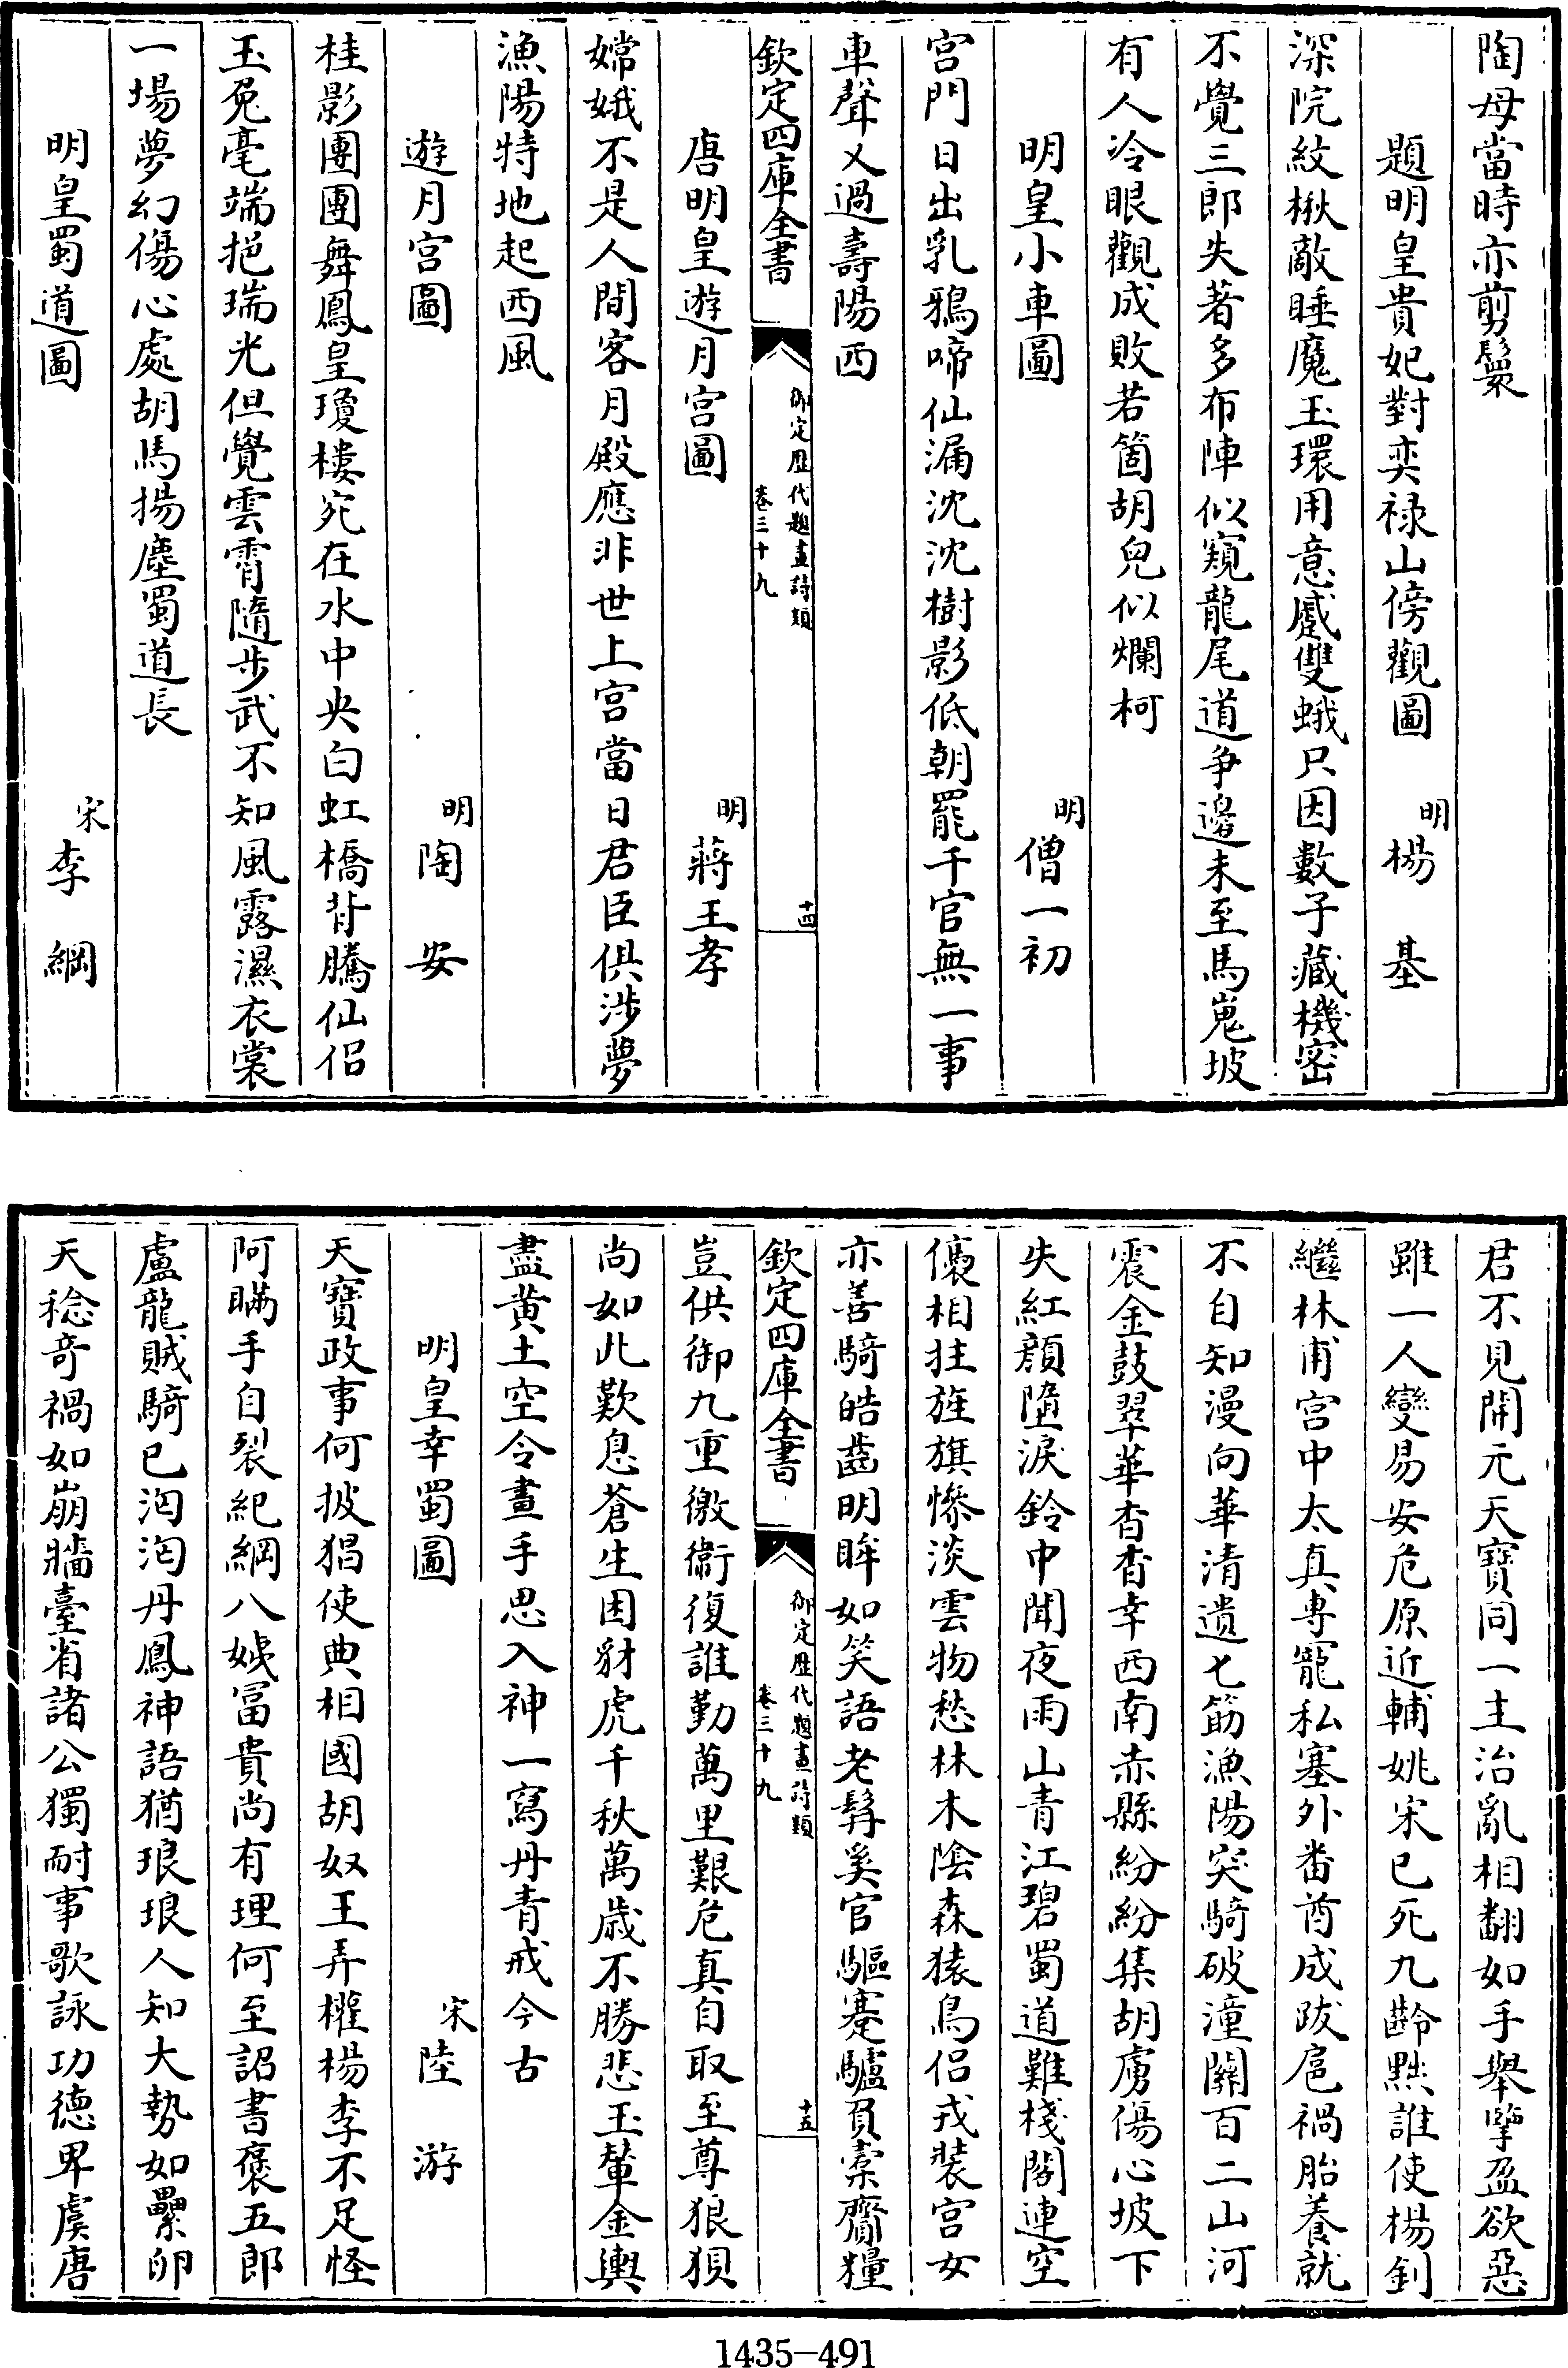 陶母當時亦剪鬟
題明皇貴妃對奕祿山傍觀圖 明楊基
深院紋楸敵睡魔玉環用意蹙雙蛾只因數子藏機密
不覺三郎失著多布陣似窺龍尾道爭邊未至馬嵬坡
有人冷眼觀成敗若箇胡兒似爛柯
明皇小車圖 明僧一初
宮門日出乳鴉啼仙漏沈沈樹影低朝罷千官無一事
車聲又過壽陽西
欽定四庫全書 御定歷代題畫詩類 卷三十九 十四
唐明皇遊月宮圖 明蔣王孝
嫦娥不是人間客月殿應非世上宮當日君臣俱涉夢
漁陽特地起西風
遊月宮圖 明陶安
桂影團團舞鳳皇瓊樓宛在水中央白虹橋背騰仙侶
玉兔毫端挹瑞光但覺雲霄隨步武不知風露濕衣裳
一場夢幻傷心處胡馬揚塵蜀道長
明皇蜀道圖 宋李綱
君不見開元天寶同一主治亂相翻如手舉擥盈欲惡
雖一人變易安危原近輔姚宋已死九齡黜誰使楊釗
繼林甫宮中太真專寵私塞外番酋成跋扈禍胎養就
不自知漫向華清遺匕筯漁陽突騎破潼關百二山河
震金鼓翠華杳杳幸西南赤縣紛紛集胡虜傷心坡下
失紅顏墮淚鈴中聞夜雨山青江碧蜀道難棧閣連空
儴相拄旌旗慘淡雲物愁林木陰森猿鳥侶戎裝宮女
亦善騎皓齒明眸如笑語老髯奚官驅蹇驢負橐齎糧
欽定四庫全書 御定歷代題畫詩類 卷三十九 十五
豈供御九重徼衞復誰勤萬里艱危真自取至尊狼狽
尚如此歎息蒼生困豺虎千秋萬歲不勝悲玉輦金輿
盡黃土空令畫手思入神一寫丹青戒今古
明皇幸蜀圖 宋陸游
天寶政事何披猖使典相國胡奴王弄權楊李不足怪
阿瞞手自裂紀綱八姨冨貴尚有理何至詔書褒五郎
盧龍賊騎已洶洶丹鳳神語猶琅琅人知大勢如纍卵
天稔奇禍如崩牆臺省諸公獨耐事歌詠功德卑虞唐
1435-491